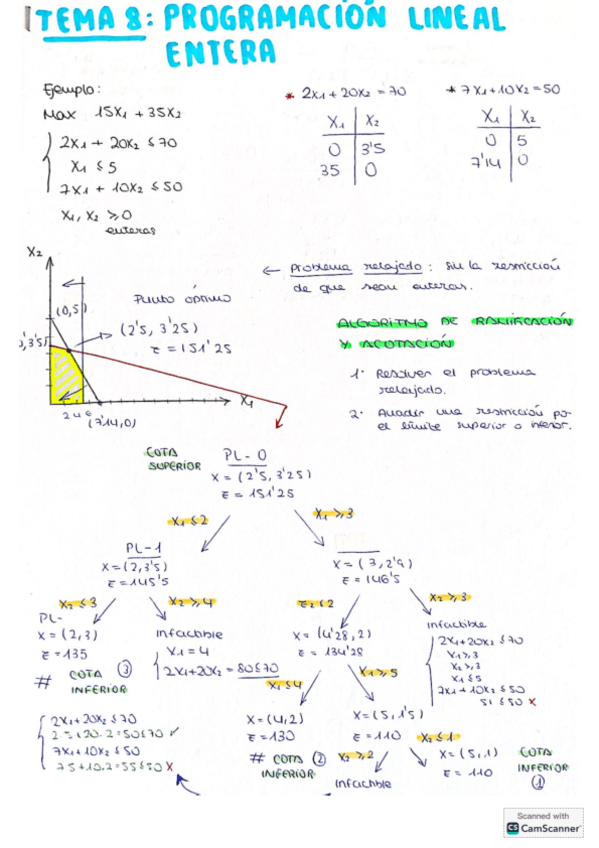 TEMA 8: PROGRAMACIÓN LINEAL
ENTERA
Ejemplo:
Max 15X1 + 35X2
2X1 + 20X2 ≤ 70
X1 ≤ 5
7X1 + 10X2 ≤ 50
X1, X2 ≥ 0
enteras
* 2X1 + 20X2 = 70
X1 | X2
0 | 3'5
35 | 0
* 7X1 + 10X2 = 50
X1 | X2
0 | 5
7'14 | 0
X2
(0,5)
Punto óptimo
(2'5, 3'25)
z = 151'25
0,3'5)
X1
2 4 6
(7'14,0)
← Problema relajado: sin la restricción
de que sean enteras.
ALGORITMO DE RAMIFICACIÓN
Y ACOTACIÓN
1. Resolver el problema
relajado.
2. Añadir una restricción por
el límite superior o inferior.
COTA
SUPERIOR
PL - 0
X = (2'5, 3'25)
z = 151'25
X1 ≤ 2
X1 ≥ 3
PL - 1
X = (2, 3'5)
z = 145'5
X = (3, 2'9)
z = 146'5
X2 ≤ 3
X2 ≥ 4
X2 ≥ 3
PL-
X = (2,3)
z = 135
# COTA ③
INFERIOR
Infactible
2X1 + 20X2 = 80 ≤ 70
X = (4'28, 2)
z = 134'28
Infactible
2X1 + 20X2 ≤ 70
X1 ≥ 3
X2 ≥ 3
X1 ≤ 5
7X1 + 10X2 ≤ 50
51 ≤ 50 X
X1 ≤ 4
X1 ≥ 5
X = (4,2)
z = 130
# COTA ②
INFERIOR
X = (5, 1'5)
z = 110
X2 ≥ 2
X2 ≤ 1
Infactible
X = (5,1)
z = 110
COTA
INFERIOR
①
2X1 + 20X2 ≤ 70
2·5 + 20·2 = 50 ≤ 70 ✓
7X1 + 10X2 ≤ 50
7·5 + 10·2 = 55 ≤ 50 X
Scanned with
CS CamScanner